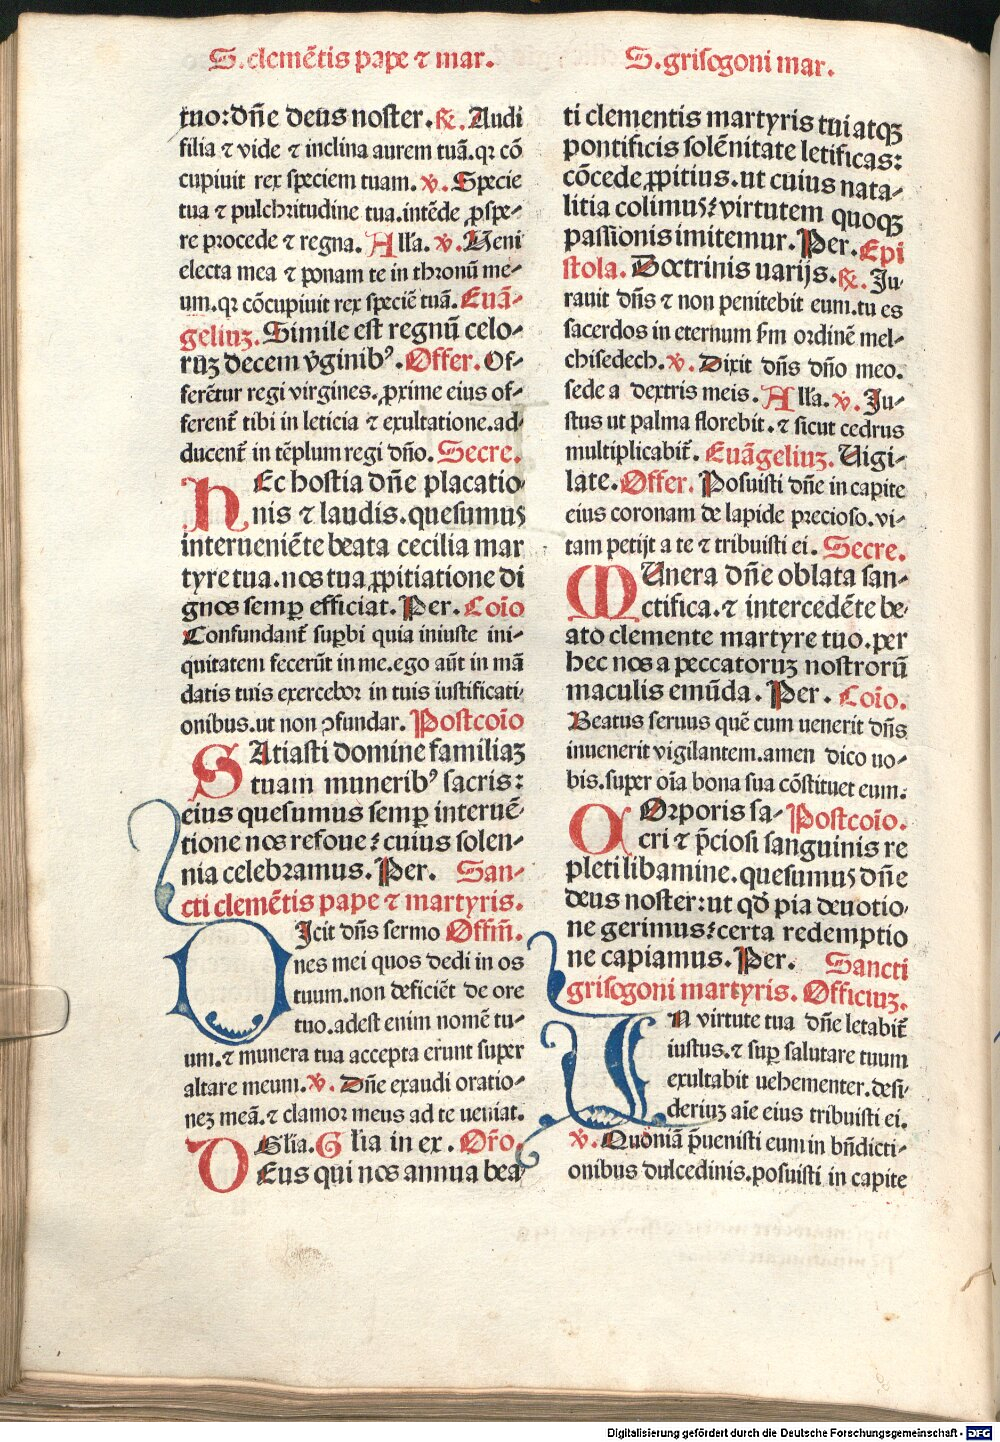 S. clemētis pape ⁊ mar.
S. grisogoni mar.
tuo: dñe deus noster. ℟. Audi
filia ⁊ vide ⁊ inclina aurem tuā. qꝛ cō
cupiuit rex speciem tuam. ℣. Specie
tua ⁊ pulchritudine tua. intēde ꝓspe-
re procede ⁊ regna. Alľa. ℣. Ueni
electa mea ⁊ ponam te in thronū me-
um. qꝛ cōcupiuit rex speciē tuā. Euā-
geliuꝫ. Simile est regnū celo-
ruꝫ decem v̄ginibꝰ. Offer. Of-
ferētur regi virgines. ꝓxime eius of-
ferent᷑ tibi in leticia ⁊ exultatione. ad-
ducent᷑ in tēplum regi dño. Secre.
HEc hostia dñe placatio-
nis ⁊ laudis. quesumus
interueniēte beata cecilia mar
tyre tua. nos tua ꝓpitiatione di
gnos semꝑ efficiat. Per. Coīo
Confundant᷑ suꝑbi quia iniuste ini-
quitatem fecerūt in me. ego aūt in mā
datis tuis exercebor in tuis iustificati
onibus. ut non ꝯfundar. Postcoīo
SAtiasti domine familiaꝫ
tuam muneribꝰ sacris:
eius quesumus semꝑ interuē-
tione nos refoue: cuius solen-
nia celebramus. Per. San-
cti clemētis pape ⁊ martyris.
DIcit dñs sermo Offiñ.
nes mei quos dedi in os
tuum. non deficiēt de ore
tuo. adest enim nomē tu-
um. ⁊ munera tua accepta erunt super
altare meum. ℣. Dñe exaudi oratio-
neꝫ meā. ⁊ clamor meus ad te ueniat.
Gľia. Gľia in ex. Oro.
DEus qui nos annua bea-
ti clementis martyris tui atqꝫ
pontificis solēnitate letificas:
cōcede ꝓpitius. ut cuius nata-
litia colimus: virtutem quoqꝫ
passionis imitemur. Per. Epi
stola. Doctrinis uarijs. ℟. Ju-
rauit dñs ⁊ non penitebit eum. tu es
sacerdos in eternum ẜm ordinē mel-
chisedech. ℣. Dixit dñs dño meo.
sede a dextris meis. Alľa. ℣. Ju-
stus ut palma florebit. ⁊ sicut cedrus
multiplicabit᷑. Euāgeliuꝫ. Uigi-
late. Offer. Posuisti dñe in capite
eius coronam de lapide precioso. vi-
tam petijt a te ⁊ tribuisti ei. Secre.
MUnera dñe oblata san-
ctifica. ⁊ intercedēte be-
ato clemente martyre tuo. per
hec nos a peccatoruꝫ nostrorū
maculis emūda. Per. Coīo.
Beatus seruus quē cum uenerit dñs
inuenerit vigilantem. amen dico uo-
bis. super oīa bona sua cōstituet eum.
COrporis sa- Postcoīo.
cri ⁊ p̄ciosi sanguinis re
pleti libamine. quesumus dñe
deus noster: ut qđ pia deuotio-
ne gerimus: certa redemptio
ne capiamus. Per. Sancti
grisogoni martyris. Officiuꝫ.
IN virtute tua dñe letabit᷑
iustus. ⁊ suꝑ salutare tuum
exultabit uehementer. desi-
deriuꝫ aīe eius tribuisti ei.
℣. Quoniā p̄uenisti eum in bñdicti-
onibus dulcedinis. posuisti in capite
Digitalisierung gefördert durch die Deutsche Forschungsgemeinschaft - DFG